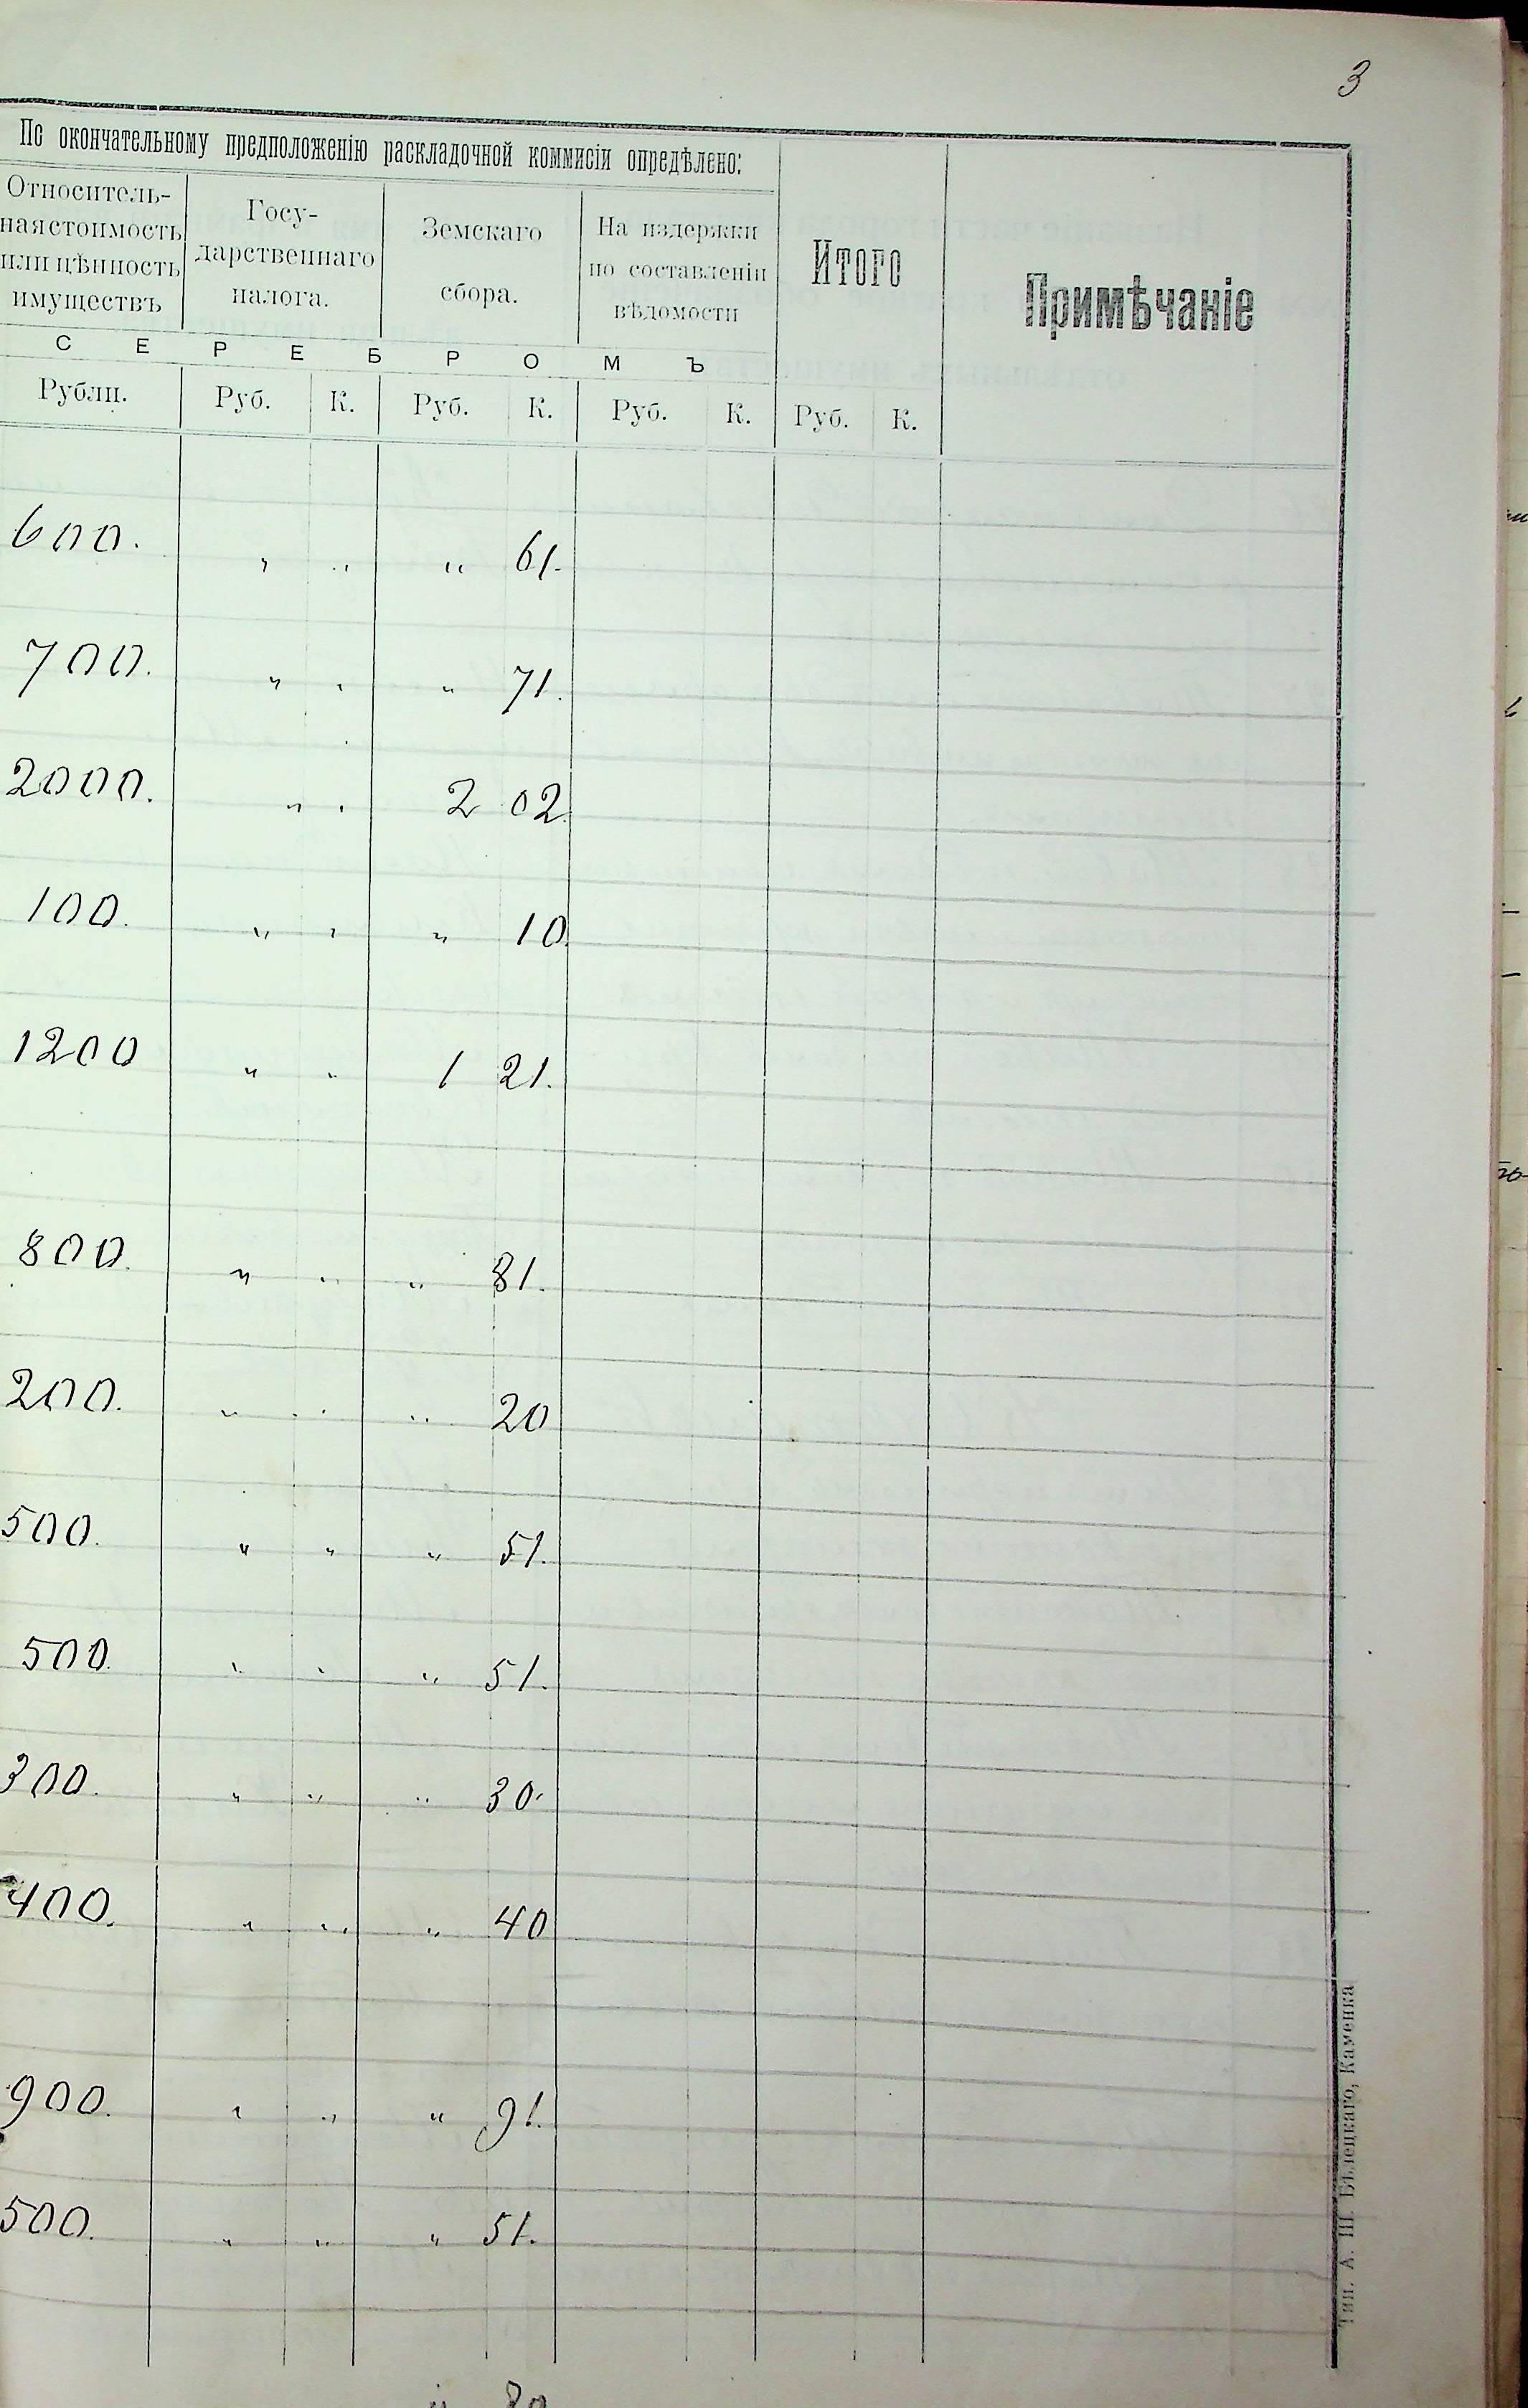 3
По окончательному предположенію раскладочной коммисіи опредѣлено:
Относитель-
ная стоимость
или цѣнность
имуществъ
Госу-
дарственнаго
налога.
Земскаго
сбора.
На издержки
по составленіи
вѣдомости
Итого
Примѣчаніе
С Е Р Е Б Р О М Ъ
Рубли. Руб. К. Руб. К. Руб. К. Руб. К.
600. " " " 61.
700. " " " 71.
2000. " " 2 02.
100. " " " 10.
1200 " " 1 21.
800. " " " 81.
200. " " " 20
500. " " " 51.
500. " " " 51.
300. " " " 30.
400. " " " 40
900. " " " 91.
500. " " " 51.
Тип. А. Ш. Бѣлецкаго, Каменка